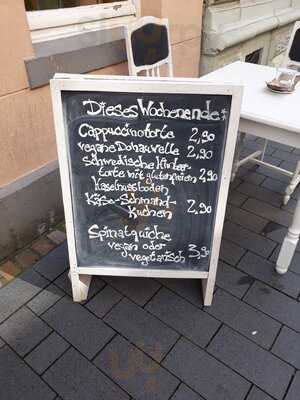 Dieses Wochenende:
Cappuccinotorte 2,90
vegane Donauwelle 2,90
Schwedische Kinder-
torte mit glutenfreien 2,90
Haselnussboden
Käse-Schmand- 2,90
Kuchen
Spinatquiche
vegan oder 3,90
vegetarisch